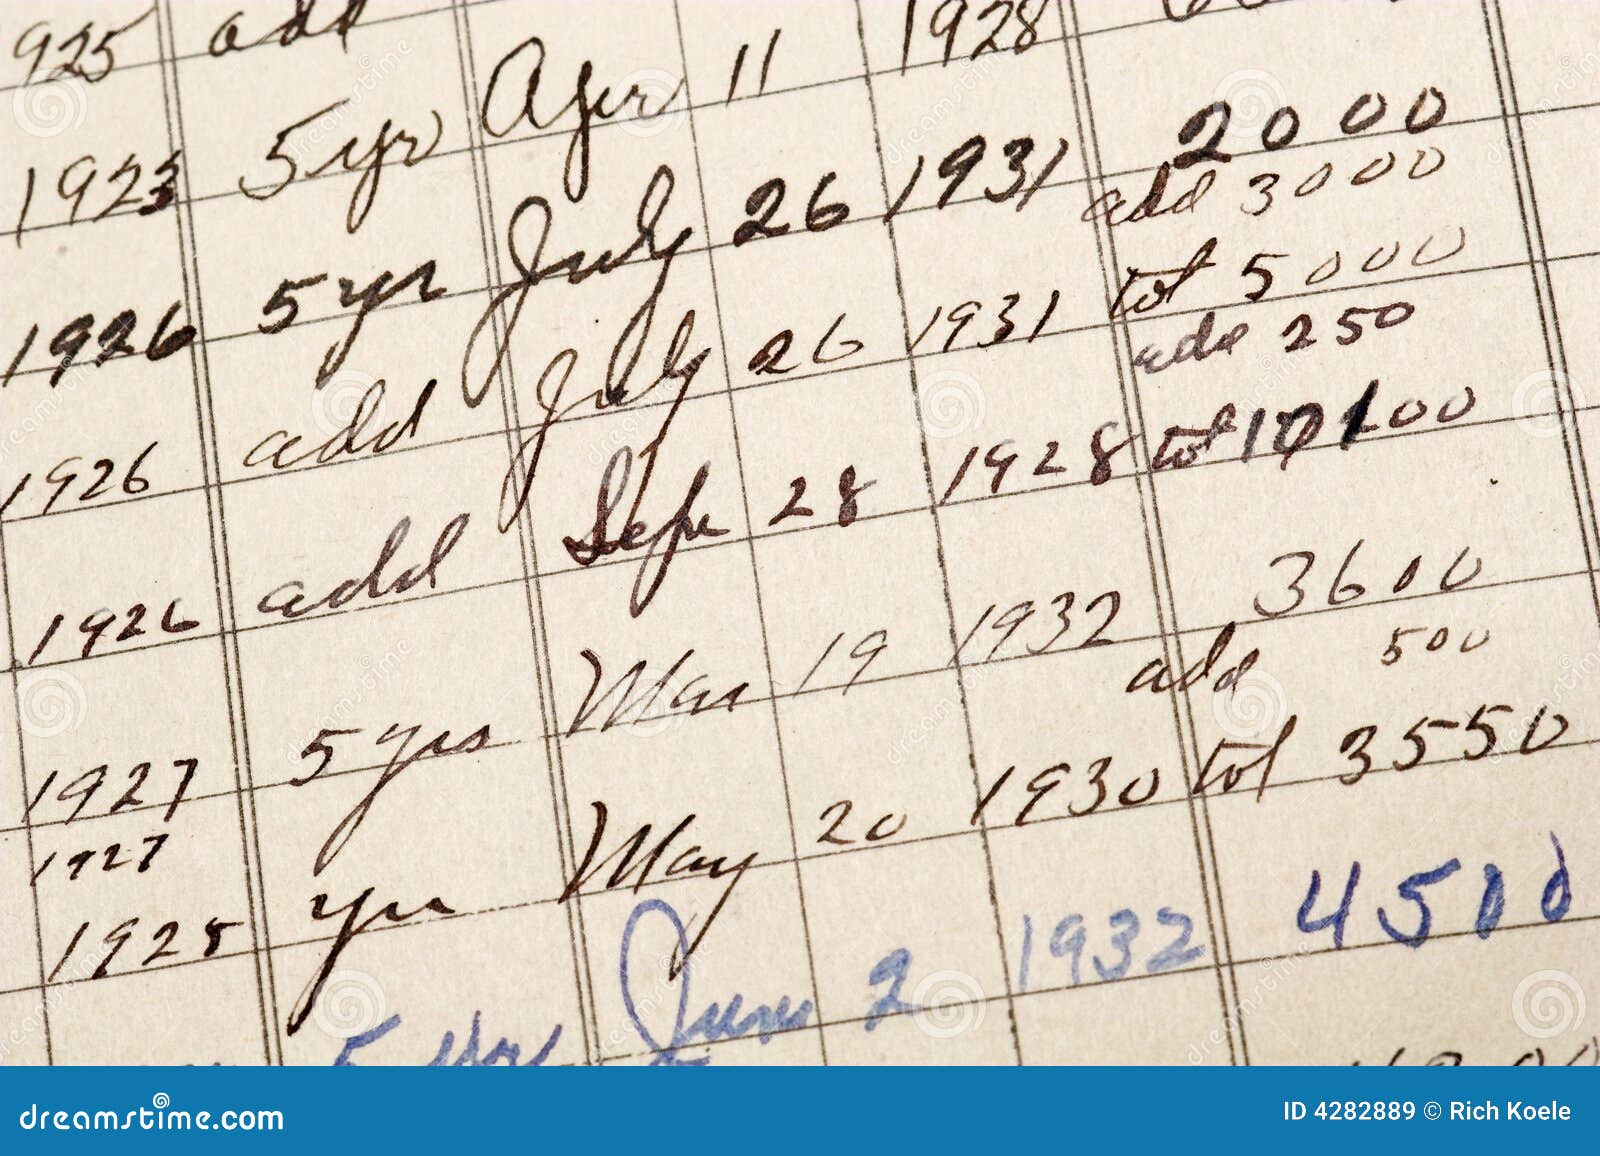 925 add
1923 5 yr Apr 11 1928
1926 5 yr July 26 1931 2000
add 3000
1926 add July 26 1931 tot 5000
add 250
1926 add Sep 28 1928 tot
1927 5 yrs Mar 19 1932 3600
1927 add 500
1928 yr May 20 1930 tot 3550
5 yr June 2 1932 4500
dreamstime.com
ID 4282889 © Rich Koele